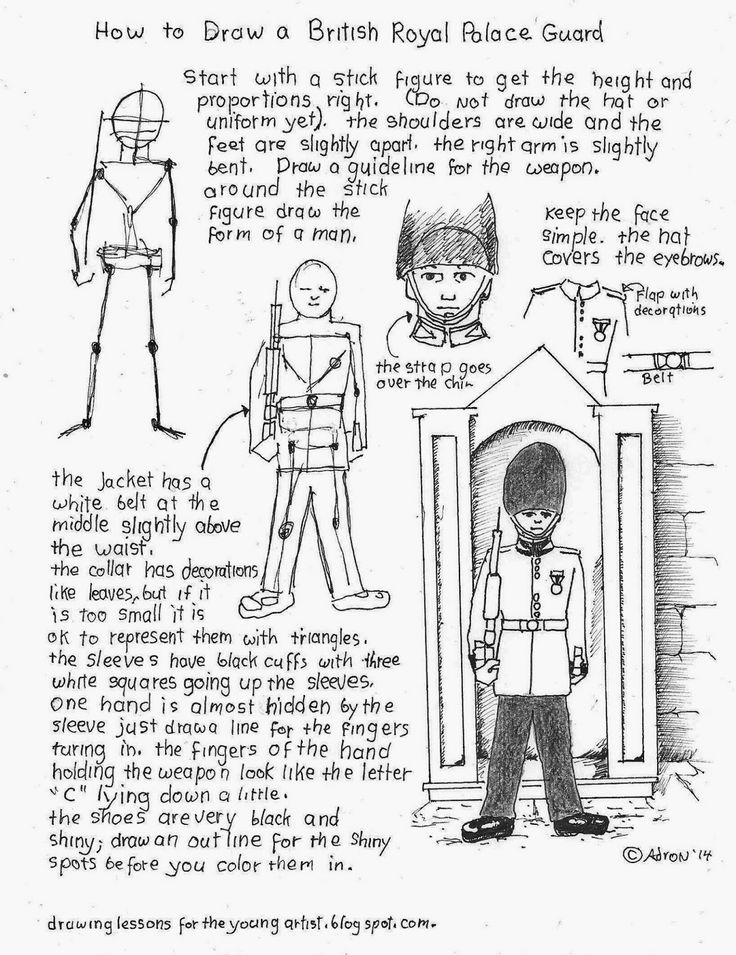 How to Draw a British Royal Palace Guard
Start with a stick figure to get the height and
proportions right. (Do not draw the hat or
uniform yet). the shoulders are wide and the
feet are slightly apart. the right arm is slightly
bent. Draw a guideline for the weapon.
around the stick
figure draw the
form of a man.
Keep the face
simple. the hat
covers the eyebrows.
Flap with
decorations
Belt
the strap goes
over the chin
the jacket has a
white belt at the
middle slightly above
the waist.
the collar has decorations
like leaves, but if it
is too small it is
ok to represent them with triangles.
the sleeves have black cuffs with three
white squares going up the sleeves.
One hand is almost hidden by the
sleeve just draw a line for the fingers
turing in. the fingers of the hand
holding the weapon look like the letter
"C" lying down a little.
the shoes are very black and
shiny; draw an outline for the shiny
spots before you color them in.
© Adron '14
drawing lessons for the young artist. blog spot. com.